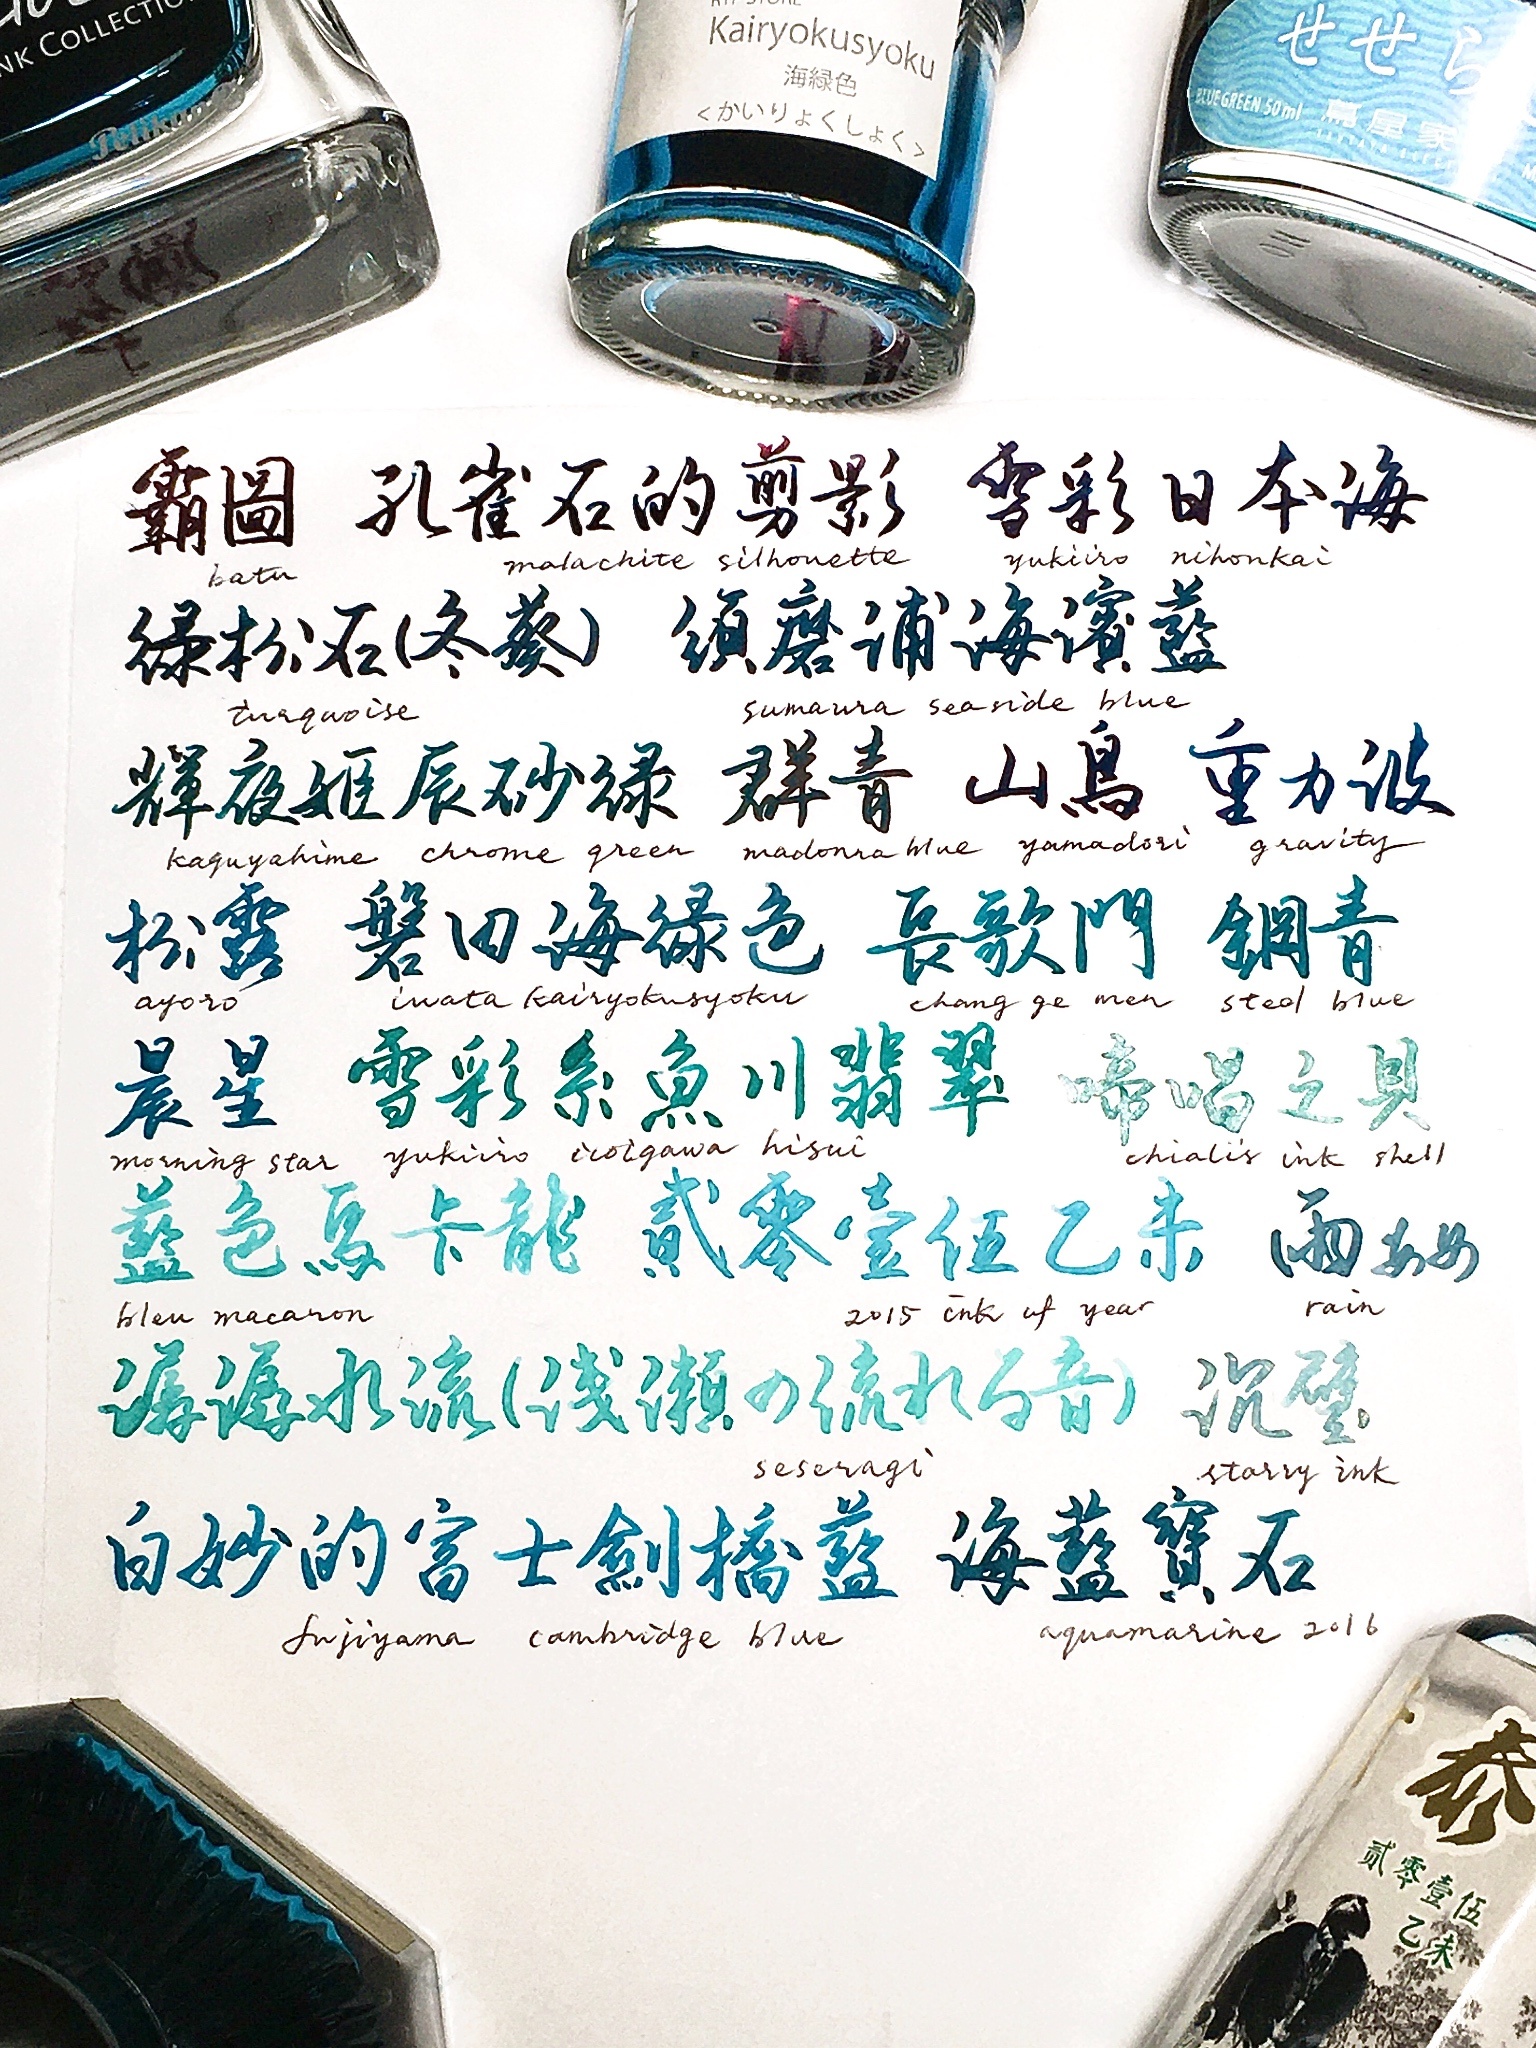 INK COLLECTION
Pelikan
Kairyokusyoku
海緑色
<かいりょくしょく>
せせら
BLUE GREEN 50ml
蔦屋家
霸圖 孔雀石的剪影 雪彩日本海
batu malachite silhouette yukiiro nihonkai
绿松石(冬葵) 須磨浦海濱藍
turquoise sumaura seaside blue
輝夜姬辰砂绿 群青 山鳥 重力波
kaguyahime chrome green madonna blue yamadori gravity
松露 磐田海绿色 長歌門 鋼青
ayoro iwata kairyokusyoku chang ge men steel blue
晨星 雪彩糸魚川翡翠 啼唱之貝
morning star yukiiro itoigawa hisui chialis ink shell
藍色馬卡龍 貳零壹伍乙未 雨
bleu macaron 2015 ink of year rain
潺潺水流(浅瀬の流れる音) 沉璧
seseragi starry ink
白妙的富士劍橋藍 海藍寶石
fujiyama cambridge blue aquamarine 2016
泰
贰零壹伍
乙未